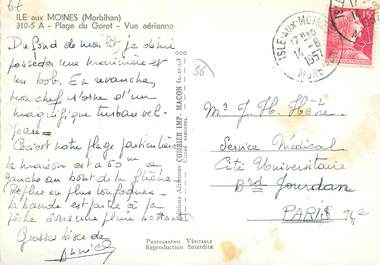 67
ILE aux MOINES (Morbihan)
310-5 A - Plage du Goret - Vue aérienne
Du fond de mon lit je
posséder une marinière et
un bob. En revanche,
mon chef s'orne d'un
magnifique turban vel-
peau.
Ceci est notre plage particulière
la maison est à 50 m
gauche au bout de la flèche
De plus en plus loufoques
la bande est partie à la
pêche sous une pluie battante
Grosses bises de
Annie
56
Editions Aériennes COMBIER IMP. MACON
Photographie Véritable
Reproduction Interdite
ISLE-AUX-MOINES
14-8
1957
MORBIHAN
15F
Mr J. H.
Service Médical
Cité Universitaire
Bd Jourdan
PARIS 14e